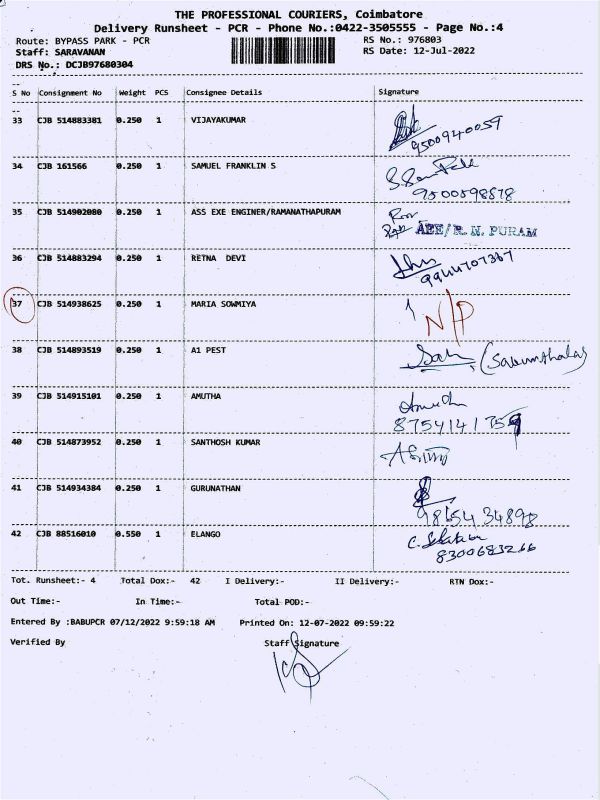 THE PROFESSIONAL COURIERS, Coimbatore
Delivery Runsheet - PCR - Phone No.:0422-3505555 - Page No.:4
Route: BYPASS PARK - PCR RS No.: 976803
Staff: SARAVANAN RS Date: 12-Jul-2022
DRS No.: DCJB97680304
S No Consignment No Weight PCS Consignee Details Signature
33 CJB 514883381 0.250 1 VIJAYAKUMAR
9500940059
34 CJB 161566 0.250 1 SAMUEL FRANKLIN S
9500598878
35 CJB 514902080 0.250 1 ASS EXE ENGINER/RAMANATHAPURAM
AEE/R. N. PURAM
36 CJB 514883294 0.250 1 RETNA DEVI
9944707367
37 CJB 514938625 0.250 1 MARIA SOWMIYA
N/P
38 CJB 514893519 0.250 1 A1 PEST
39 CJB 514915101 0.250 1 AMUTHA
40 CJB 514873952 0.250 1 SANTHOSH KUMAR
41 CJB 514934384 0.250 1 GURUNATHAN
42 CJB 88516010 0.550 1 ELANGO
8300683266
Tot. Runsheet:- 4 Total Dox:- 42 I Delivery:- II Delivery:- RTN Dox:-
Out Time:- In Time:- Total POD:-
Entered By :BABUPCR 07/12/2022 9:59:18 AM Printed On: 12-07-2022 09:59:22
Verified By Staff Signature